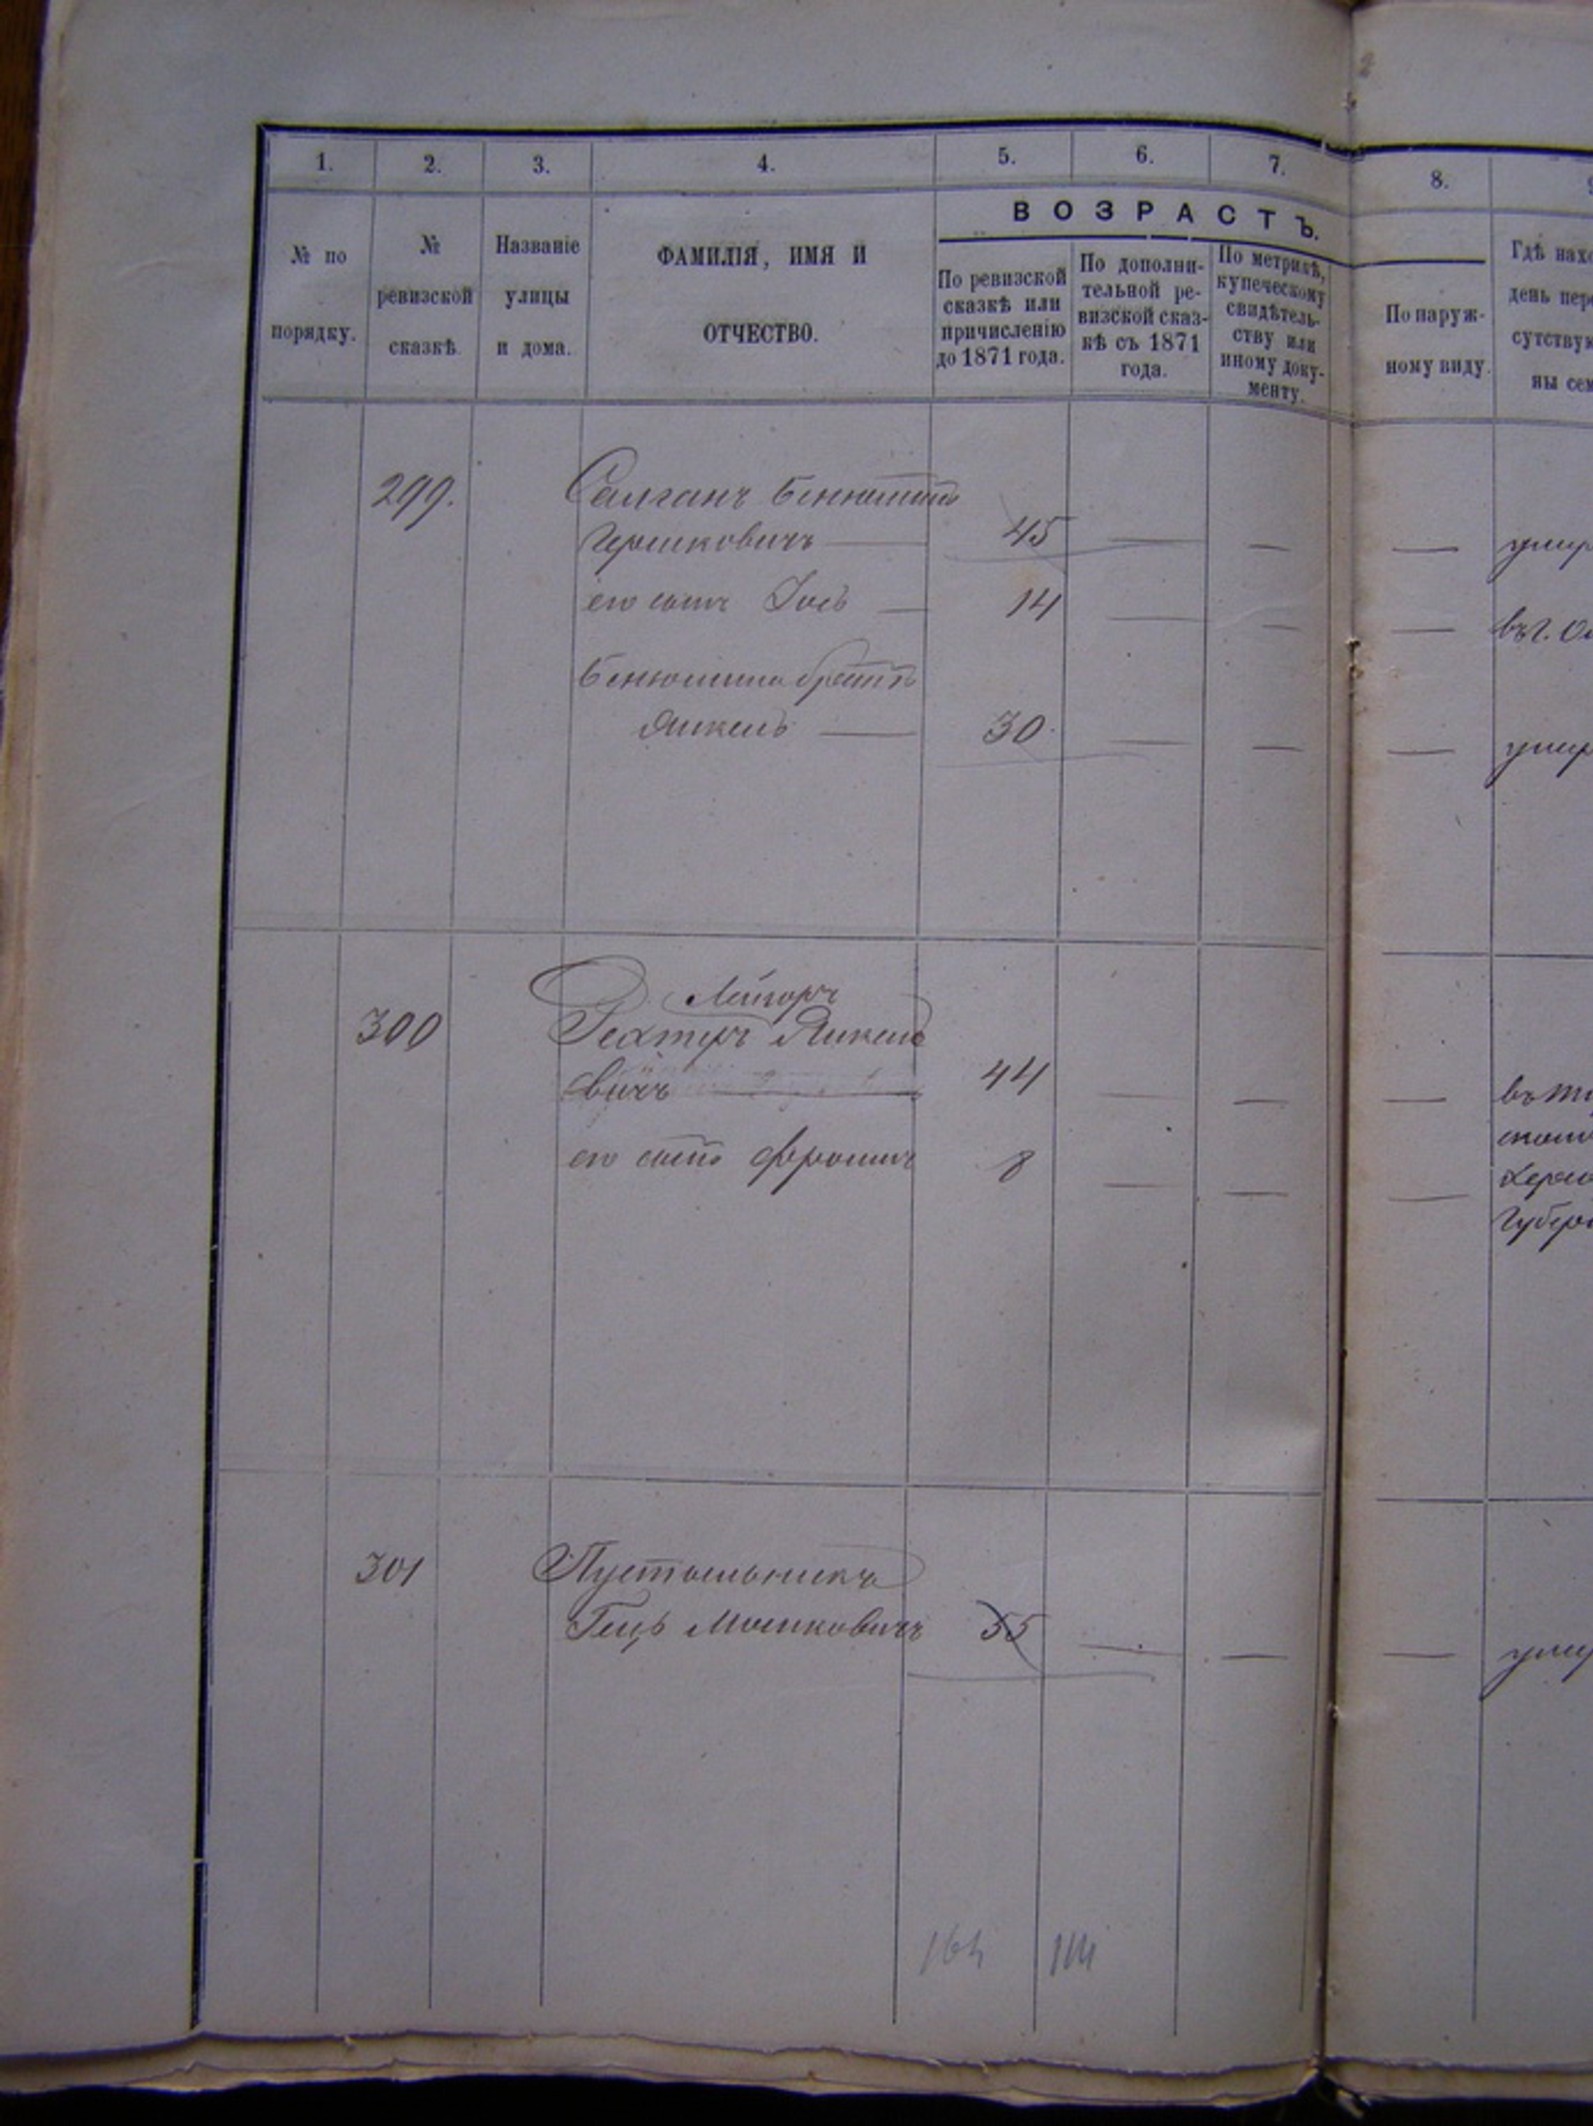 1. 2. 3. 4. 5. 6. 7. 8.
ВОЗРАСТЪ.
№ по
порядку.
№
ревизской
сказкѣ.
Названіе
улицы
и дома.
ФАМИЛІЯ, ИМЯ И
ОТЧЕСТВО.
По ревизской
сказкѣ или
причисленію
до 1871 года.
По дополни-
тельной ре-
визской сказ-
кѣ съ 1871
года.
По метрикѣ,
купеческому
свидѣтель-
ству или
иному доку-
менту.
По наруж-
ному виду.
Гдѣ нахо
день пере
сутствую
ны сем
299. Салганъ Бенюминъ
Гершковичъ — 45 — — — умер
его сынъ Іось — 14 — — — въ г. Од
Бенюмина братъ
Янкель — 30 — — — умер
Лейзоръ
300 Рехтеръ Янкеле
вичъ — 44 — — —
его сынъ Фроимъ 8 — — —
Херсо
Губерн
301 Пустыльникъ
Гецъ Мошковичъ 55 — — — умер